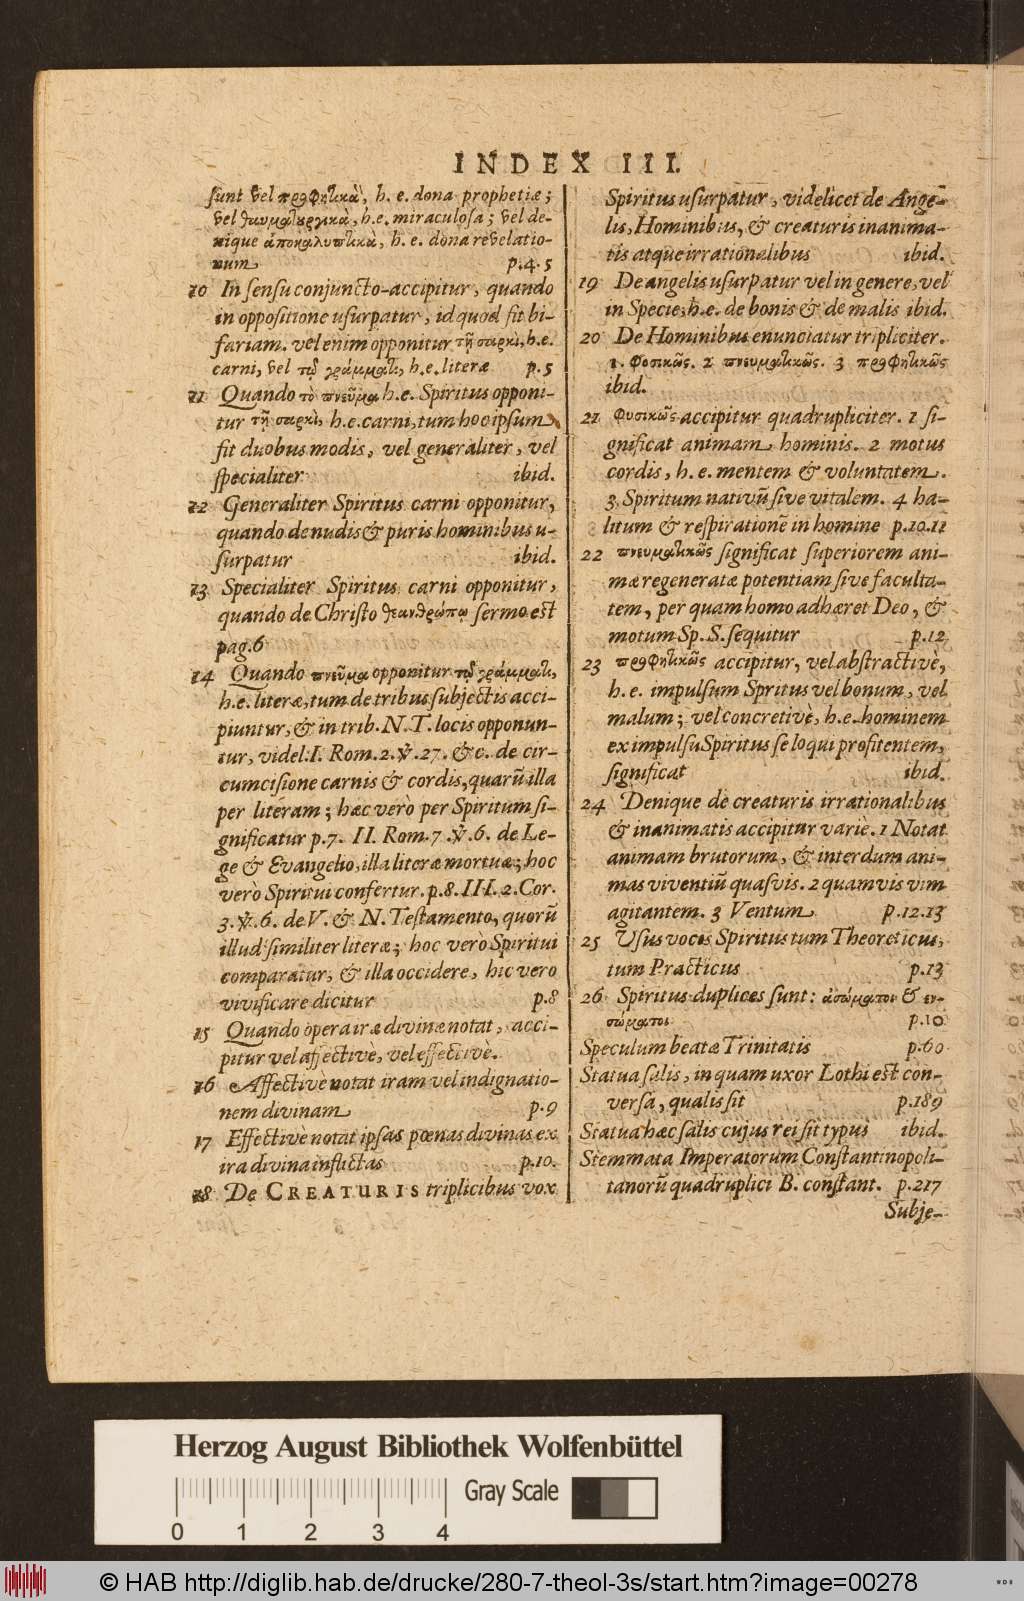 INDEX III.
sunt vel προφητικὰ, h. e. dona prophetiæ;
vel θαυματουργικὰ, h.e. miraculosa; vel de-
nique ἀποκαλυπτικὰ, h. e. dona revelatio-
num p.4.5
10 In sensu conjuncto accipitur, quando
in oppositione usurpatur, id quod fit bi-
fariam. vel enim opponitur τῇ σαρκὶ, h.e.
carni, vel τῷ γράμματι, h.e. literæ p.5
11 Quando τὸ πνεῦμα h.e. Spiritus opponi-
tur τῇ σαρκὶ, h.e. carni, tum hoc ipsum
fit duobus modis, vel generaliter, vel
specialiter ibid.
12 Generaliter Spiritus carni opponitur,
quando de nudis & puris hominibus u-
surpatur ibid.
13 Specialiter Spiritus carni opponitur,
quando de Christo θεανθρώπῳ sermo est
pag.6
14 Quando πνεῦμα opponitur τῷ γράμματι,
h.e. literæ, tum de tribus subjectis acci-
piuntur, & in trib. N.T. locis opponun-
tur, videl: I. Rom.2.℣.27. &c. de cir-
cumcisione carnis & cordis, quarũ illa
per literam; hæc verò per Spiritum si-
gnificatur p.7. II. Rom.7.℣.6. de Le-
ge & Evangelio, illa literæ mortuæ; hoc
verò Spiritui confertur. p.8. III. 2. Cor.
3.℣.6. de V. & N. Testamento, quorũ
illud similiter literæ; hoc verò Spiritui
comparatur, & illa occidere, hic vero
vivificare dicitur p.8
15 Quando opera iræ divinæ notat, acci-
pitur vel affectivè, vel effectivè.
16 Affectivè notat iram vel indignatio-
nem divinam p.9
17 Effectivè notat ipsas pœnas divinas ex
ira divina inflictas p.10.
18 De CREATURIS triplicibus vox
Spiritus usurpatur, videlicet de Ange-
lis, Hominibus, & creaturis inanima-
tis atque irrationalibus ibid.
19 De angelis usurpatur vel in genere, vel
in Specie, h.e. de bonis & de malis ibid.
20 De Hominibus enunciatur tripliciter.
1. φυσικῶς. 2 πνευματικῶς. 3 προφητικῶς
ibid.
21 φυσικῶς accipitur quadrupliciter. 1 si-
gnificat animam hominis. 2 motus
cordis, h. e. mentem & voluntatem.
3. Spiritum nativũ sive vitalem. 4 ha-
litum & respirationẽ in homine p.10.11
22 πνευματικῶς significat superiorem ani-
mæ regeneratæ potentiam sive faculta-
tem, per quam homo adhæret Deo, &
motum Sp. S. sequitur p.12
23 προφητικῶς accipitur, vel abstractivè,
h. e. impulsum Spritus vel bonum, vel
malum; vel concretivè, h.e. hominem
ex impulsu Spiritus se loqui profitentem,
significat ibid.
24 Denique de creaturis irrationalibus
& inanimatis accipitur variè. 1 Notat
animam brutorum, & interdum ani-
mas viventiũ quasvis. 2 quamvis vim
agitantem. 3 Ventum p.12.13
25 Usus vocis Spiritus tum Theoreticus,
tum Practicus p.13
26 Spiritus duplices sunt: ἀσώματοι & ἐν-
σώματοι p.10
Speculum beatæ Trinitatis p.60
Statua salis, in quam uxor Lothi est con-
versa, qualis sit p.189
Statua hæc salis cujus rei sit typus ibid.
Stemmata Imperatorum Constantinopoli-
tanorũ quadruplici B. constant. p.217
Subje-
Herzog August Bibliothek Wolfenbüttel
Gray Scale
0 1 2 3 4
© HAB http://diglib.hab.de/drucke/280-7-theol-3s/start.htm?image=00278